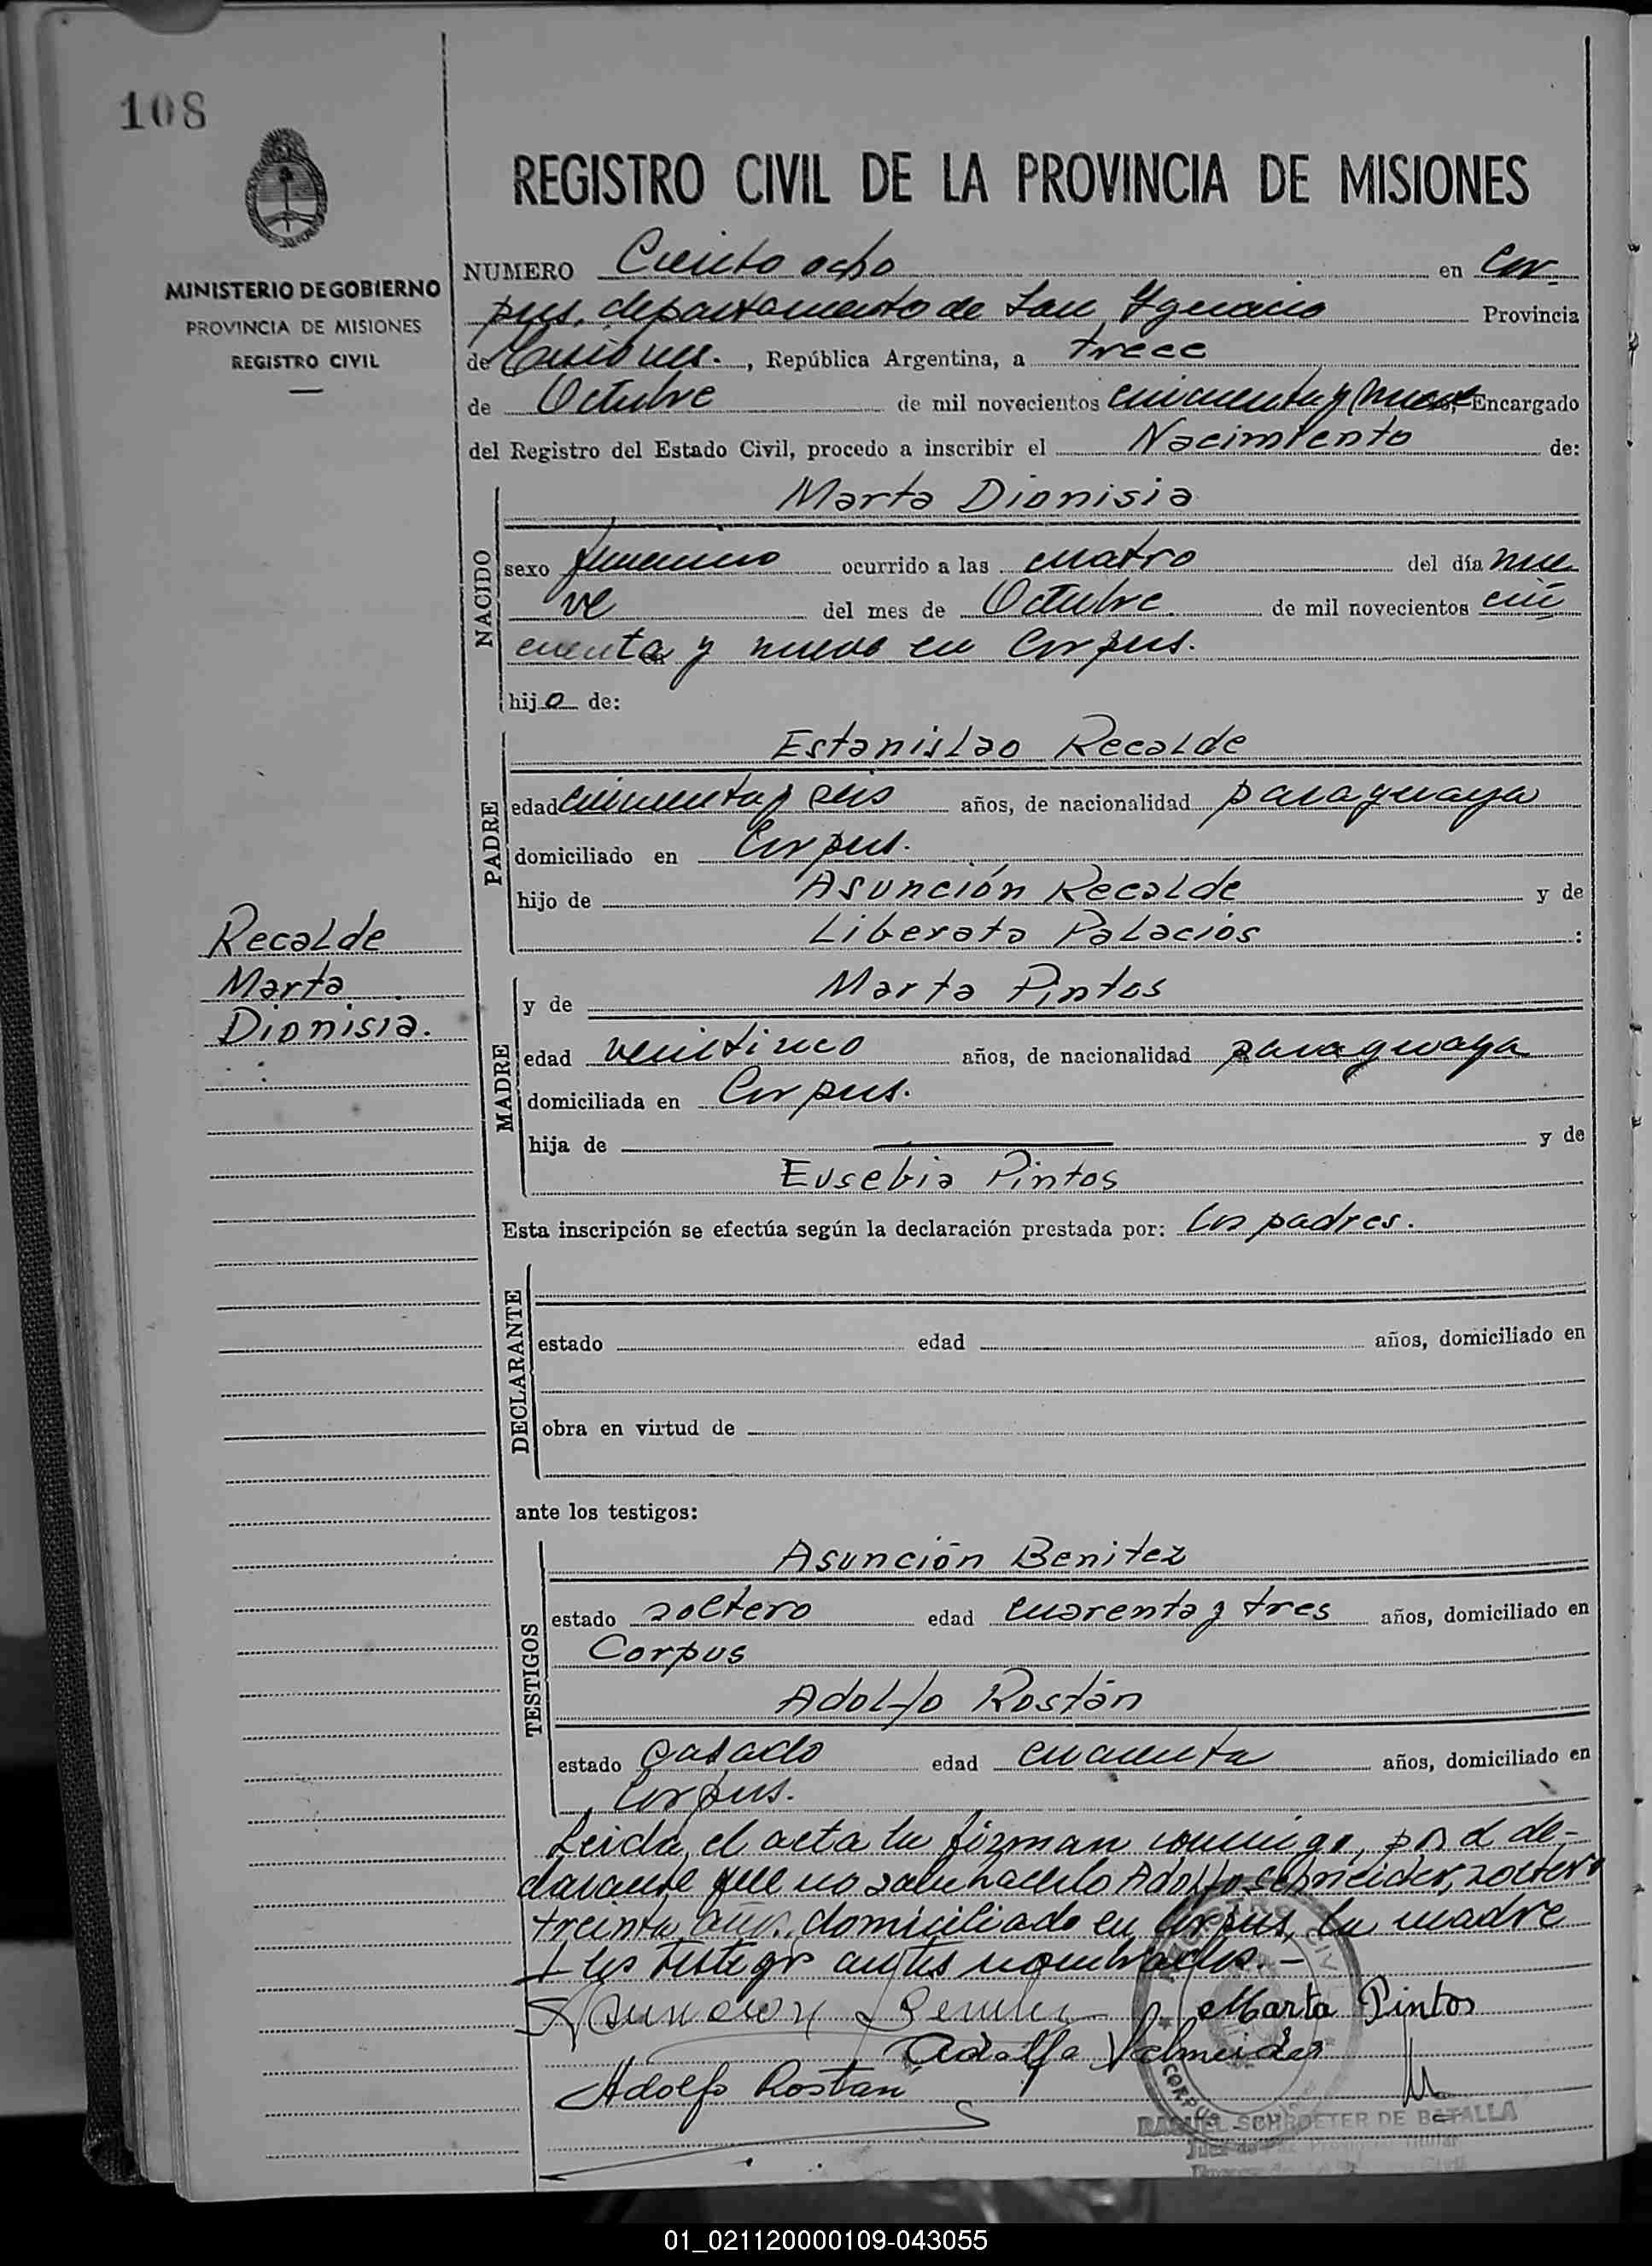 108
MINISTERIO DE GOBIERNO
PROVINCIA DE MISIONES
REGISTRO CIVIL
REGISTRO CIVIL DE LA PROVINCIA DE MISIONES
NUMERO Ciento ocho en Cor
pus, departamento de San Ygnacio Provincia
de Misiones. , República Argentina, a trece
de Octubre de mil novecientos cincuenta y nueve Encargado
del Registro del Estado Civil, procedo a inscribir el Nacimiento de:
NACIDO
Marta Dionisia
sexo femenino ocurrido a las cuatro del día nue
ve del mes de Octubre de mil novecientos cin
cuenta y nueve en Corpus.
hija de:
PADRE
Estanislao Recalde
edad cincuenta y seis años, de nacionalidad paraguaya
domiciliado en Corpus.
hijo de Asunción Recalde y de
Liberata Palacios :
Recalde
Marta
Dionisia.
MADRE
y de Marta Pintos
edad veinticinco años, de nacionalidad paraguaya
domiciliada en Corpus.
hija de y de
Eusebia Pintos
Esta inscripción se efectúa según la declaración prestada por: los padres.
DECLARANTE
estado edad años, domiciliado en
obra en virtud de
ante los testigos:
TESTIGOS
Asunción Benitez
estado soltero edad cuarenta y tres años, domiciliado en
Corpus
Adolfo Rostán
estado casado edad cincuenta años, domiciliado en
Corpus.
Leida el acta la firman conmigo, por el de-
clarante que no sabe hacerlo Adolfo Schneider, soltero
treinta años, domiciliado en Corpus, la madre
y los testigos antes nombrados.-
Asuncion Benitez Marta Pintos
Adolfo Schneider
Adolfo Rostan
CORPUS
RAQUEL SCHROETER DE BATALLA
01_021120000109-043055